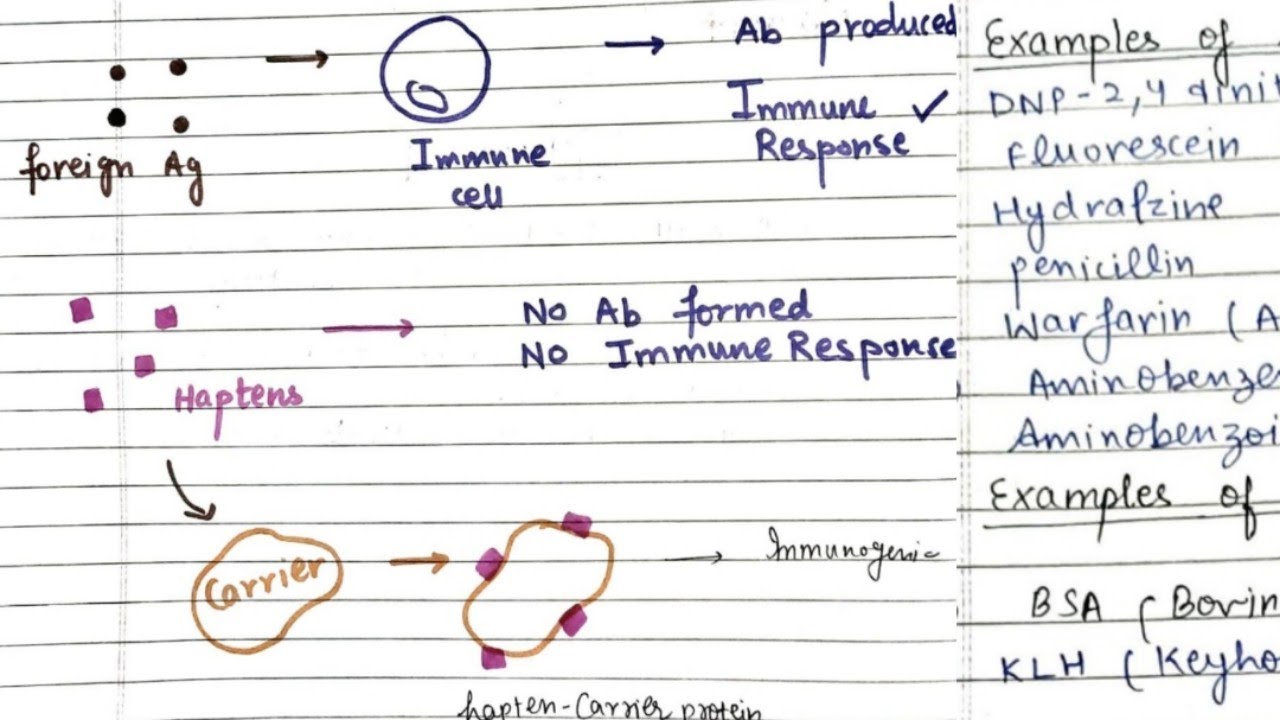 foreign Ag
Immune
cell
Ab produced
Immune ✓
Response
Haptens
No Ab formed
No Immune Response
Carrier
Immunogenic
hapten-Carrier protein
Examples of
DNP-2,4 dinit
Fluorescein
Hydralzine
penicillin
Warfarin (A
Aminobenze
Aminobenzoi
Examples of
BSA (Bovin
KLH (Keyho